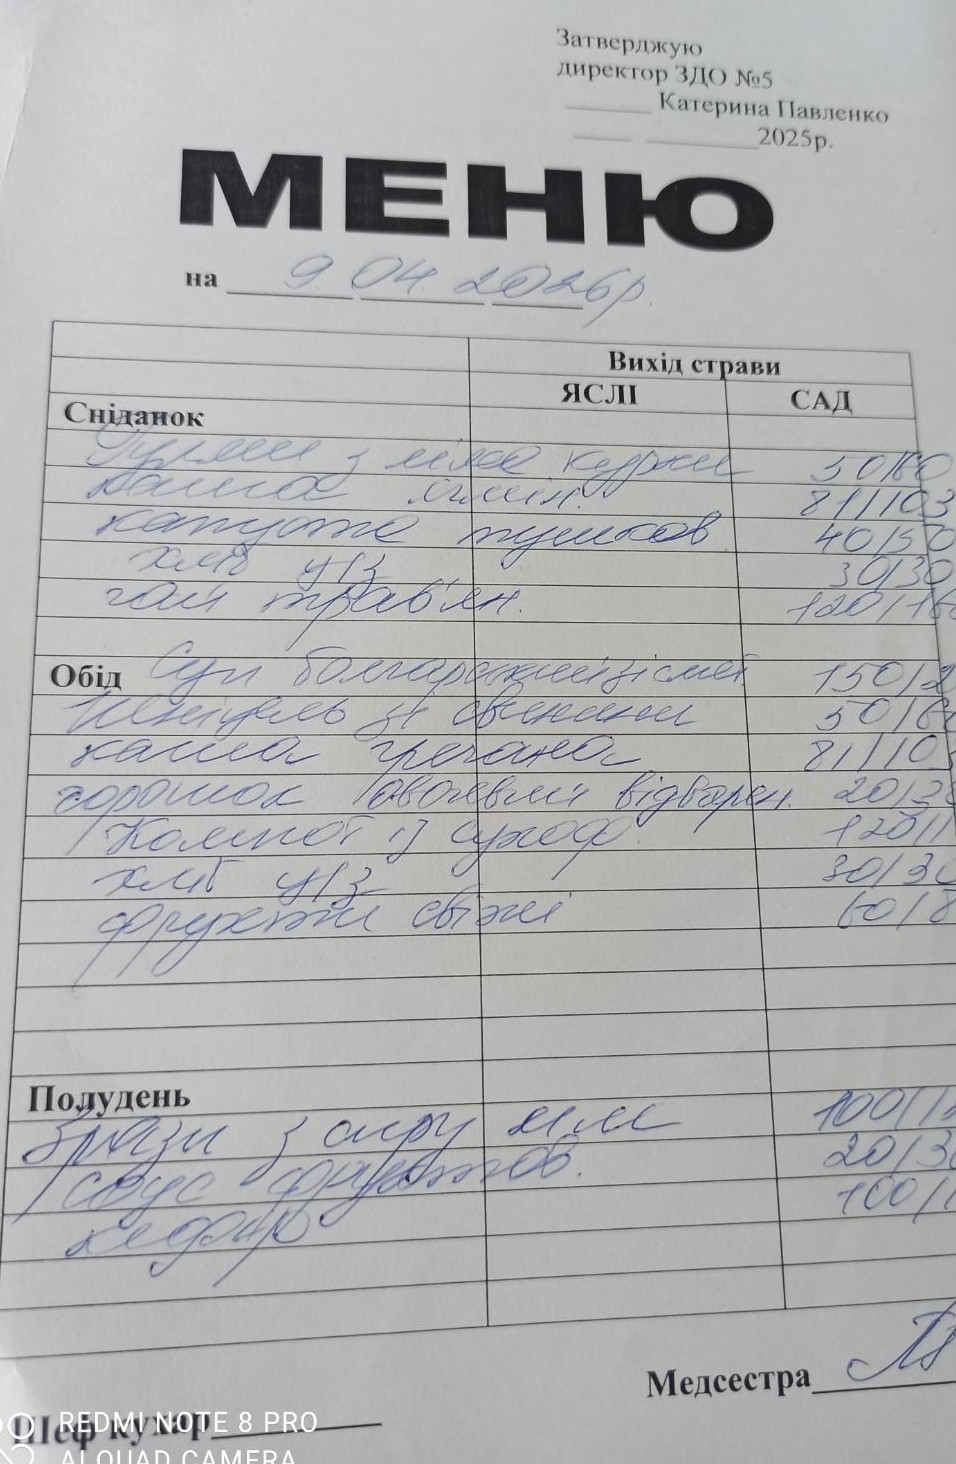 Затверджую
директор ЗДО №5
Катерина Павленко
2025р.
МЕНЮ
на 9 04 2026р.
Вихід страви
ЯСЛІ САД
Сніданок
з мяса курки 50/60
каша ячмін. 81/103
капуста тушков 40/50
хліб ц/з 30/30
чай трав'ян. 120/16
Обід Суп болгарський зі смет 150/2
Шніцель зі свинини 50/6
каша гречана 81/103
горошок овочевий відварен. 20/3
Компот із сухоф. 120/1
хліб ц/з 30/30
фрукти свіжі 60/8
Полудень
з сиру 100/1
соус фруктов. 20/30
кефір 100/1
Медсестра
Шеф кухар
REDMI NOTE 8 PRO
AI QUAD CAMERA